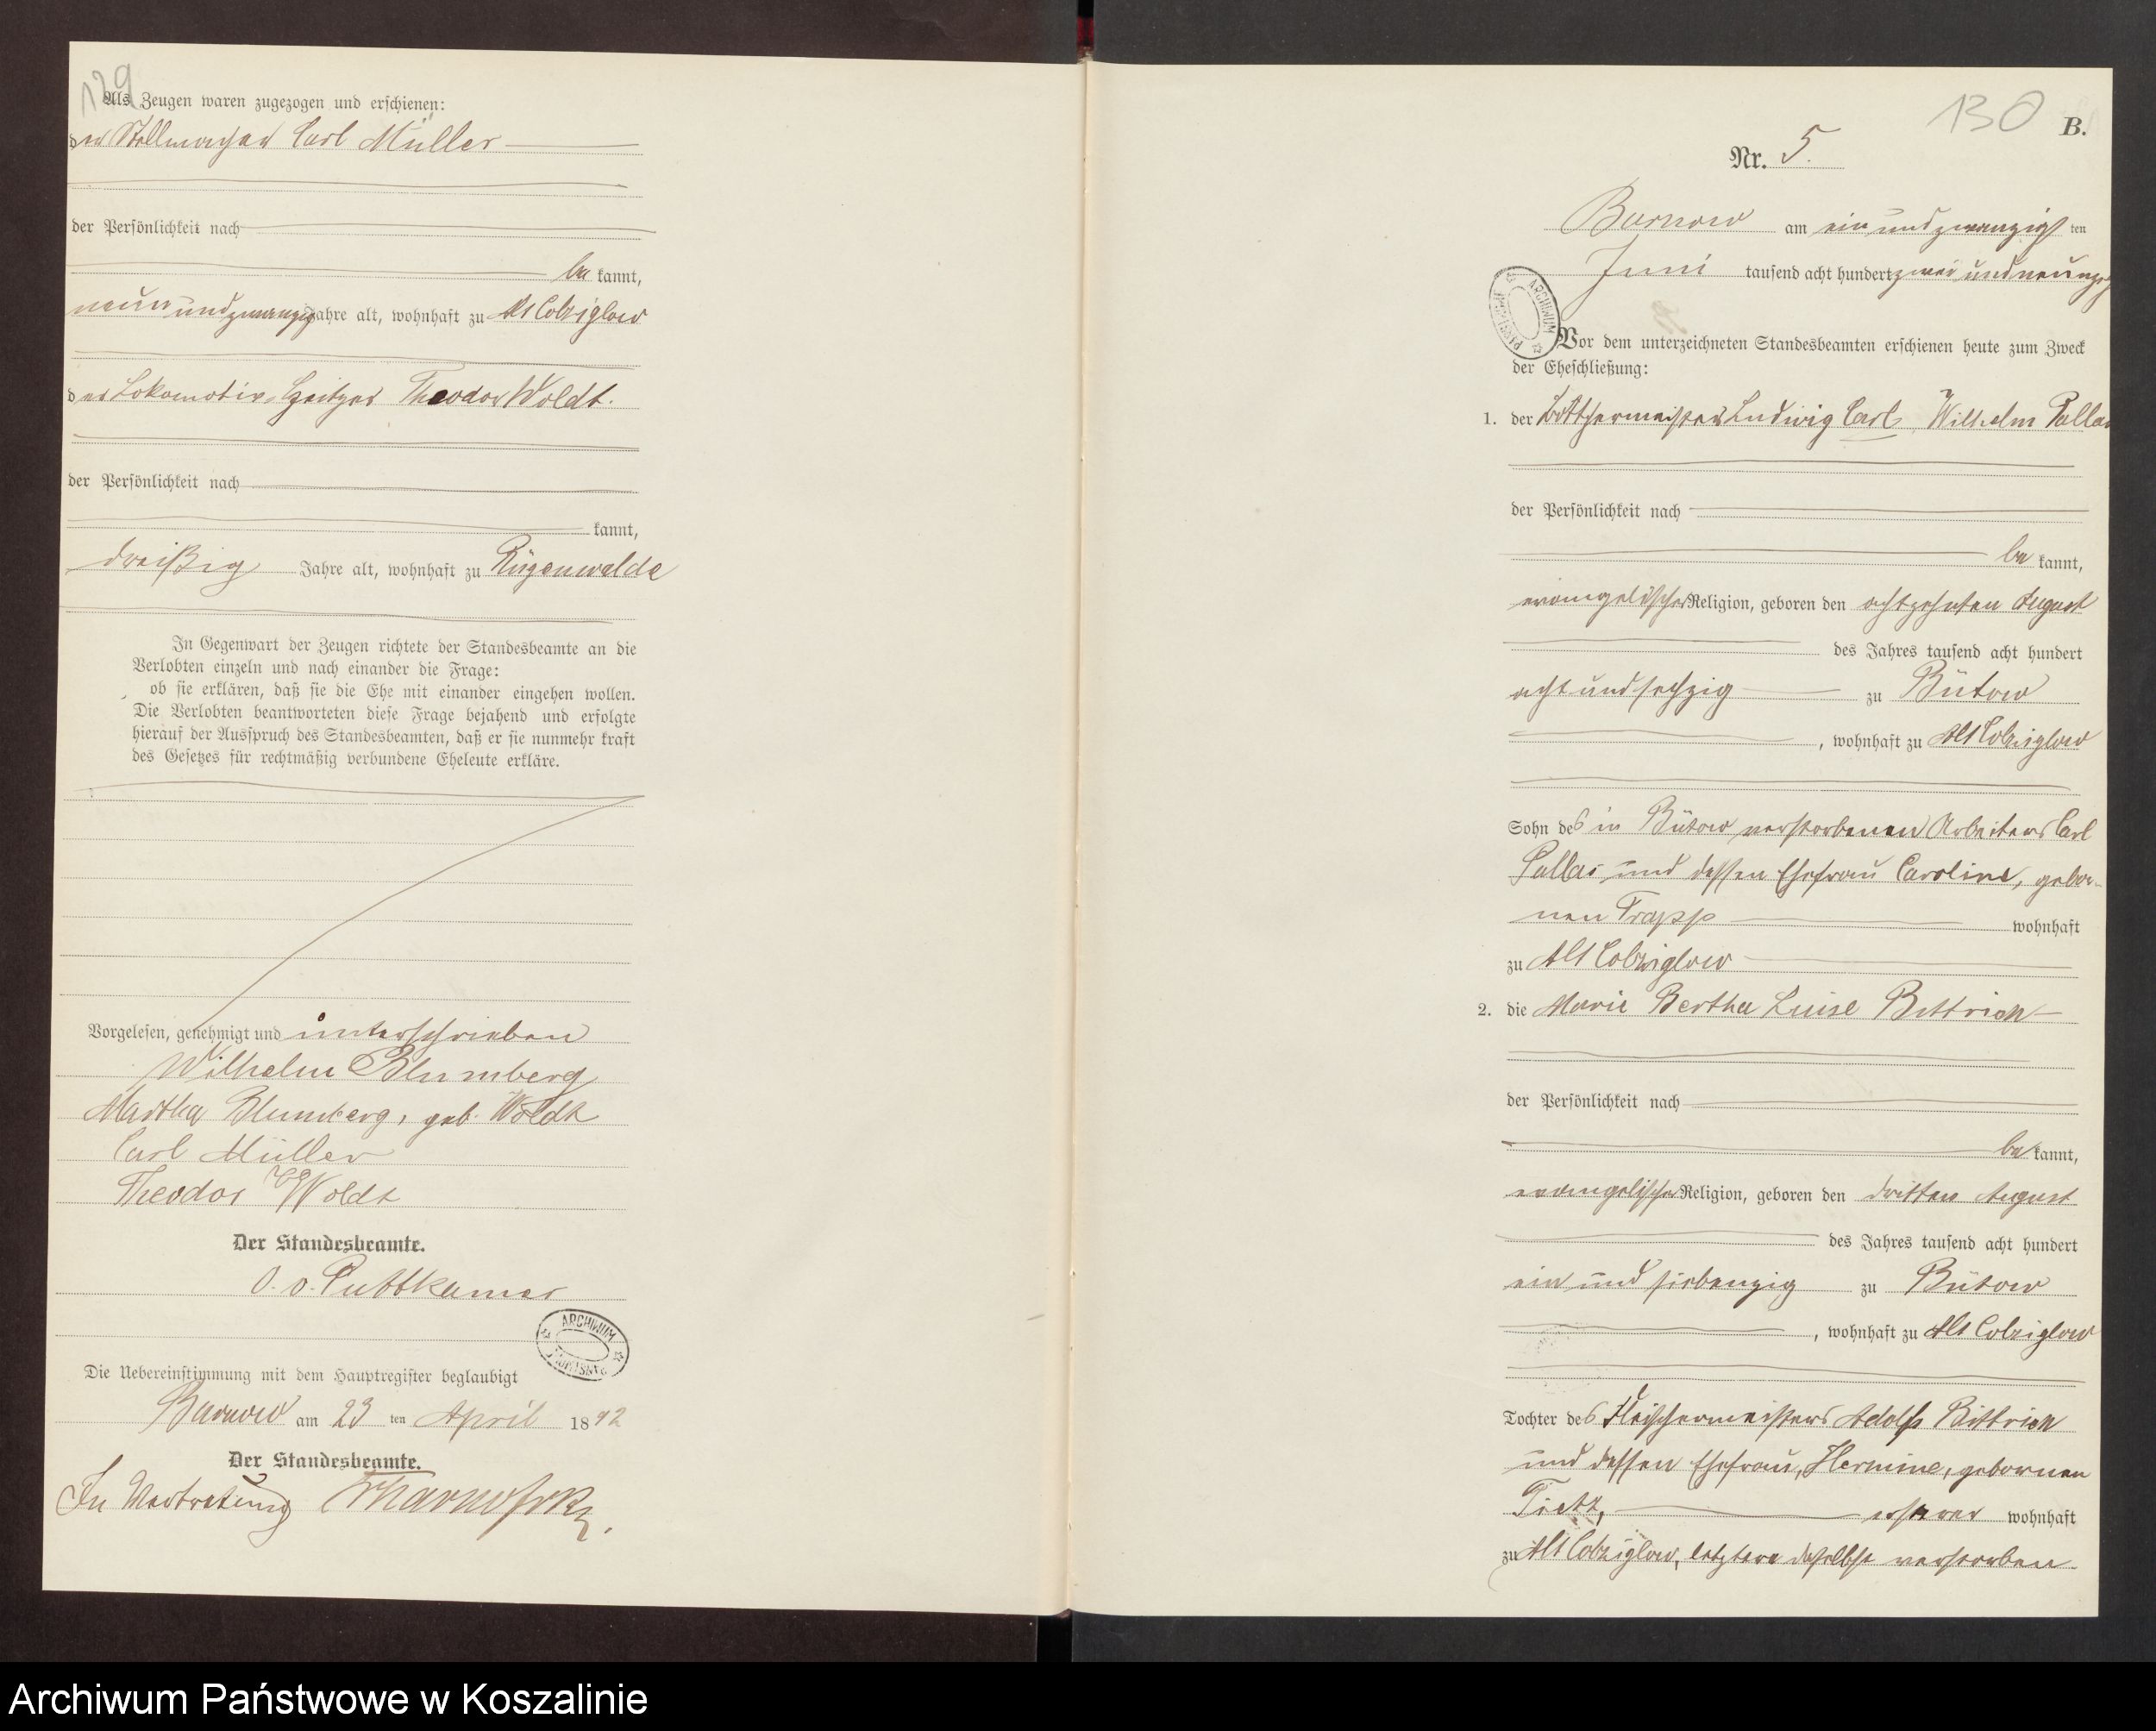 129
Als Zeugen waren zugezogen und erschienen:
der Stellmacher Carl Müller
der Persönlichkeit nach
be kannt,
neunundzwanzig Jahre alt, wohnhaft zu Alt Colziglow
der Lokomotiv-Heitzer Theodor Woldt.
der Persönlichkeit nach
kannt,
dreißig Jahre alt, wohnhaft zu Rügenwalde
In Gegenwart der Zeugen richtete der Standesbeamte an die
Verlobten einzeln und nach einander die Frage:
ob sie erklären, daß sie die Ehe mit einander eingehen wollen.
Die Verlobten beantworteten diese Frage bejahend und erfolgte
hierauf der Ausspruch des Standesbeamten, daß er sie nunmehr kraft
des Gesetzes für rechtmäßig verbundene Eheleute erkläre.
Vorgelesen, genehmigt und unterschrieben
Wilhelm Blumberg
Martha Blumberg, geb. Woldt
Carl Müller
Theodor Woldt
Der Standesbeamte.
O. v. Puttkamer
ARCHIWUM PAŃSTWOWE
Die Uebereinstimmung mit dem Hauptregister beglaubigt
Barnow am 23 ten April 1892
Der Standesbeamte.
In Vertretung
130
B.
Nr. 5.
Barnow am einundzwanzigsten
Juni tausend acht hundert zwei und neunzig
ARCHIWUM PAŃSTWOWE
Vor dem unterzeichneten Standesbeamten erschienen heute zum Zweck
der Eheschließung:
1. der Böttchermeister Ludwig Carl Wilhelm Pallas
der Persönlichkeit nach
be kannt,
evangelischer Religion, geboren den achtzehnten August
des Jahres tausend acht hundert
acht und sechzig zu Bütow
, wohnhaft zu Alt Colziglow
Sohn des in Bütow verstorbenen Arbeiters Carl
Pallas und dessen Ehefrau Caroline, gebor-
nen Trapp wohnhaft
zu Alt Colziglow
2. die Marie Bertha Luise Bittrich
der Persönlichkeit nach
be kannt,
evangelischer Religion, geboren den dritten August
des Jahres tausend acht hundert
ein und siebenzig zu Bütow
, wohnhaft zu Alt Colziglow
Tochter des Fleischermeisters Adolf Bittrich
und dessen Ehefrau, Hermine, gebornen
Tietz, ersterer wohnhaft
zu Alt Colziglow, letztere daselbst verstorben
Archiwum Państwowe w Koszalinie